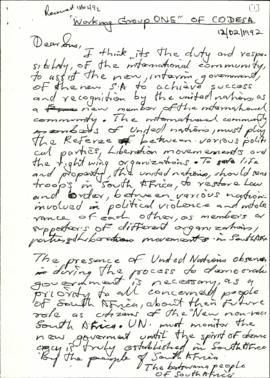 Received 18/02/92
[1]
"Working Group ONE" OF CODESA
12/02/1992
Dear Sirs,
I think its the duty and respon-
sibility, of the international community,
to assist the new, interim government,
of the new S.A to achieve success
and recognition by the united nations as
a new member of the international
community. The international community
members of United nations, must play
the Referee between various politi-
cal parties, liberation movements and
the right wing organizations. To safe life
and property, the united nations, should send
troops in South Africa, to restore Law
and Order, between various nations
involved in political violence and
of each other, as members or
supporters of different organizations,
movements in South Africa
The presence of United Nations observers
is during the process to democratic
government, is necessary, as a
priority to all concerned people
of South Africa, about their future
role as citizens of the New non-racial
South Africa. UN. must monitor the
new goverment until the spirit of demo-
cracy is truly established in South Africa
by the people of South Africa
The people
of South Africa